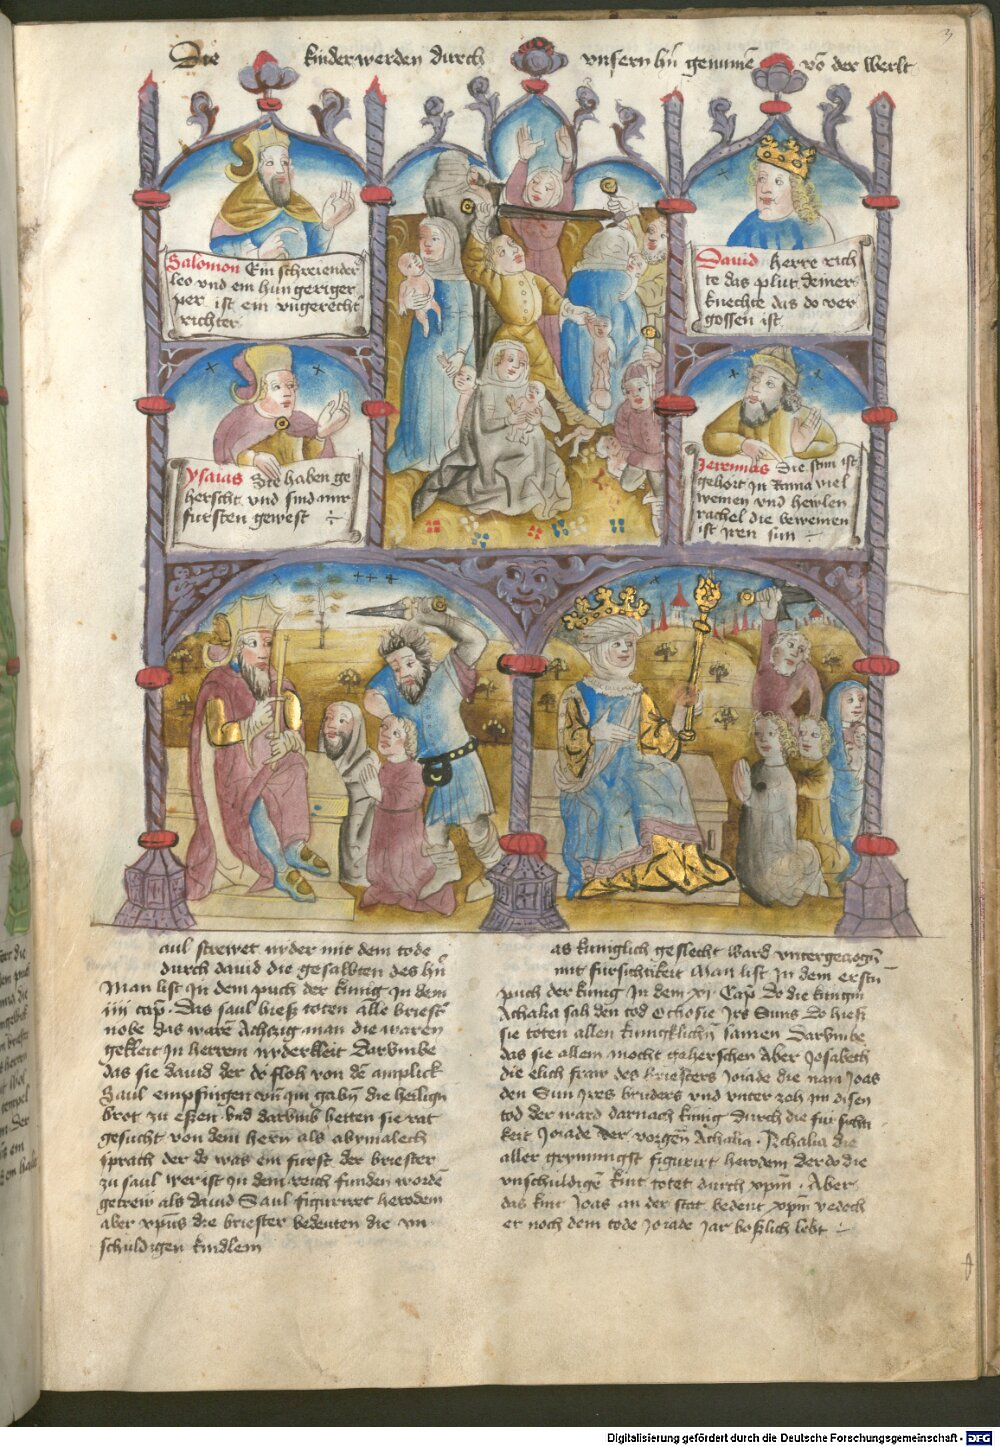 Die kinder werden durch unsern hn genume vo der werlt
3
Salomon Ein schreiender
leo und ein hungeriger
per ist ein ungerecht
richter
David herre rich
te das plut deiner
knechte das do ver
gossen ist
Ysaias Sie haben ge
herscht und sind mir
fursten gewest
Jeremias Die stim ist
gehort in Rama viel
weinen und hewlen
rachel die beweinen
ist iren sun
aul strewet nyder mit dem tode
durch david die gesalbten des hn
Man list in dem puch der kunig in dem
iiii cap Das saul hieß toten alle briest
nobe das waren Achzig man die waren
gekleit in herrem nyderkleit Darumbe
das sie david der do floh von de anplick
Saul empfingen und im gabn die heilign
brot zu essen und darumb hetten sie rat
gesucht von dem hern als abymalech
sprach der do was ein furst der briester
zu saul wer ist in dem reich funden worde
getrew als david Saul figuriret herodem
aber xpus die briester bedeuten die un
schuldigen kindlein
as kuniglich geslecht ward untergezogn
mit fursichtikeit Man list in dem erstn
puch der kunig in dem xi Cap Do die kungin
Athalia sah den tod Ochosie irs Suns Do hieß
sie toten allen kuniglichn samen Darumbe
das sie allein mocht geherschen Aber Josabeth
die elich fraw des briesters Joiade die nam Joas
den Sun irs bruders und unter zoh im disen
tod der ward darnach kunig durch die fursichti
keit Joiade der vorgen Athalia Athalia die
aller grymmigst figurirt herodem der do die
unschuldige kint totet durch xpm Aber
das kint Joas an der stat bedeut xpm yedoch
er noch dem tode Joiade gar boßlich lebt
Digitalisierung gefördert durch die Deutsche Forschungsgemeinschaft - DFG